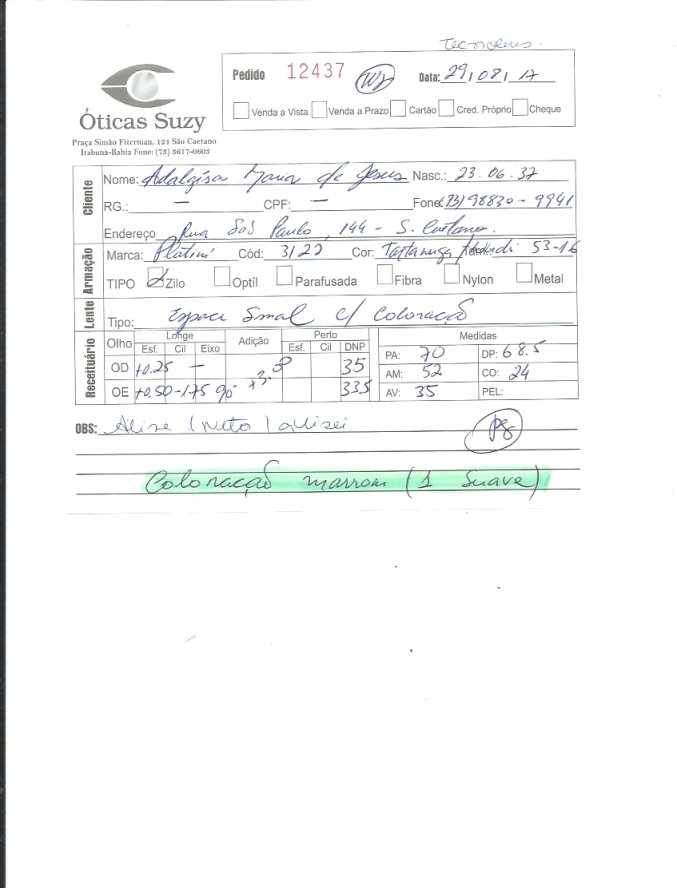 Tecnolens.
Pedido 12437 Data: 29/08/17
Venda a Vista Venda a Prazo Cartão Cred. Próprio Cheque
Óticas Suzy
Praça Simão Fiterman, 124 São Caetano
Itabuna-Bahia Fone: (73) 3617-0603
Cliente
Nome: Adalgisa Maria de Jesus Nasc.: 23.06.37
RG.: — CPF: — Fone (73) 98830-9941
Endereço Rua São Paulo, 144 - S. Caetano.
Armação
Marca: Platini Cód: 3122 Cor: Tartaruga 53-16
TIPO Zilo Optíl Parafusada Fibra Nylon Metal
Lente
Tipo: Espace Smal c/ Coloração
Receituário
Olho Longe Adição Perto Medidas
Esf. Cil Eixo Esf. Cil DNP
OD +0.25 — 35
OE +0.50 -1.75 90° 33.5
PA: 70 DP: 68.5
AM: 52 CO: 24
AV: 35 PEL:
OBS: Aline / Neto /
Coloração marrom (1 Suave)